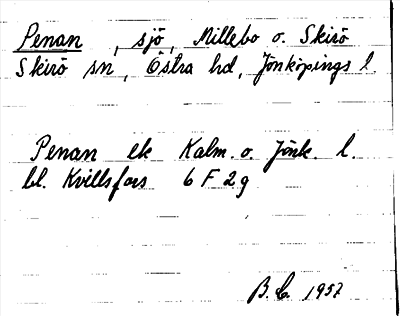 Penan, sjö, Millebo o. Skirö
Skirö sn, Östra hd, Jönköpings l.
Penan ek Kalm. o. Jönk. l.
bl. Kvillsfors 6 F 2 g
B. C. 1957